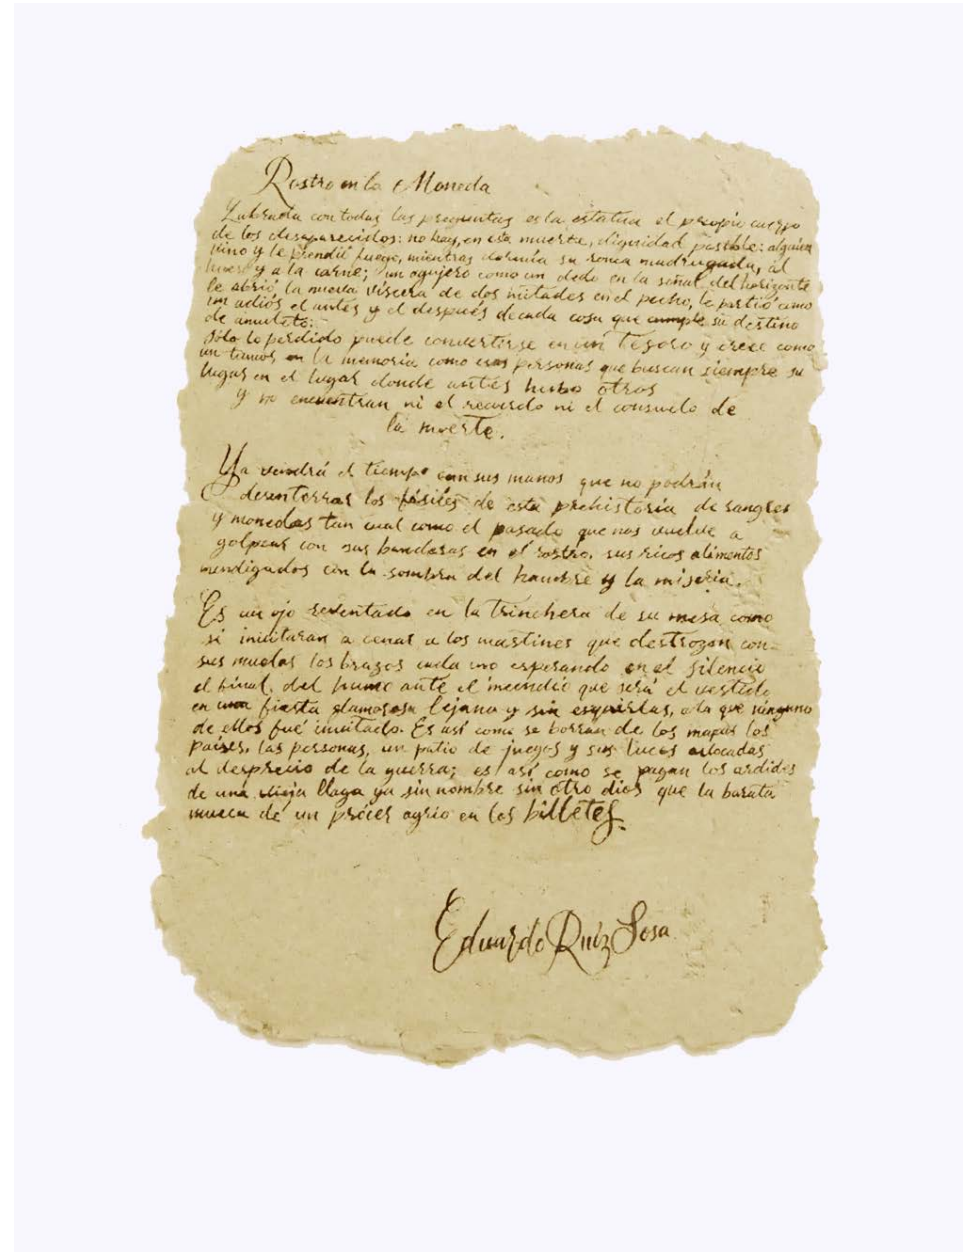 Rostro en la Moneda
Labrada con todas las preguntas es la estatua el propio cuerpo
de los desaparecidos: no hay, en esta muerte, dignidad posible: alguien
vino y le prendió fuego, mientras dormía su ronca madrugada, al
hueso y a la carne; un agujero como un dedo en la señal del horizonte
le abrió la nueva víscera de dos mitades en el pecho, le partió como
un adiós el antes y el después de cada cosa que cumple su destino
de amuleto:
Sólo lo perdido puede convertirse en un tesoro y crece como
un tumor en la memoria como esas personas que buscan siempre su
lugar en el lugar donde antes hubo otros
y no encuentran ni el recuerdo ni el consuelo de
la muerte.
Ya vendrá el tiempo con sus manos que no podrán
desenterrar los fósiles de esta prehistoria de sangres
y monedas tan cual como el pasado que nos vuelve a
golpear con sus banderas en el rostro, sus ricos alimentos
mendigados con la sombra del hambre y la miseria.
Es un ojo reventado en la trinchera de su mesa como
si invitaran a cenar a los mastines que destrozan con
sus muelas los brazos cada uno esperando en el silencio
el final del humo ante el incendio que será el vestido
en una fiesta glamorosa lejana y sin esquirlas, a la que ninguno
de ellos fué invitado. Es así como se borran de los mapas los
países, las personas, un patio de juegos y sus luces
al desprecio de la guerra; es así como se pagan los ardides
de una vieja llaga ya sin nombre sin otro dios que la barata
mueca de un prócer agrio en los billetes.
Eduardo Ruiz Sosa